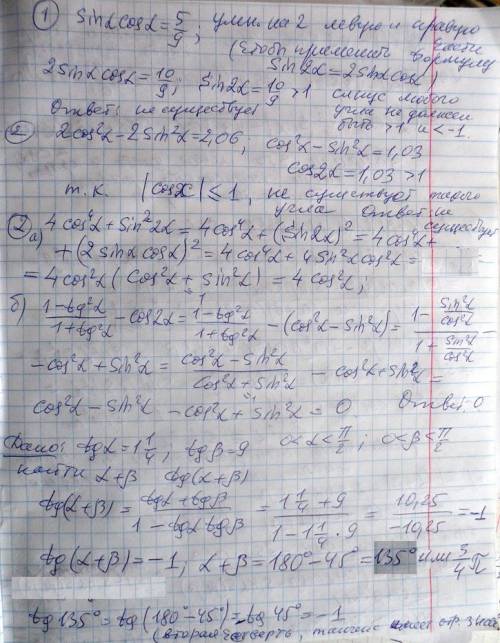 ① sinα cosα = 5/9; умн. на 2 левую и правую
части
(чтобы применить формулу
2sinα cosα = 10/9; sin2α = 10/9 > 1 sin2α = 2sinα cosα)
синус любого
Ответ: не существует угла не должен
быть >1 и <-1
② 2cos²α - 2sin²α = 2,06, cos²α - sin²α = 1,03
cos2α = 1,03 > 1
т.к. |cosx| ≤ 1, не существует такого
угла Ответ: не
существует
② а) 4cos⁴α + sin²2α = 4cos⁴α + (sin2α)² = 4cos⁴α +
+ (2sinα cosα)² = 4cos⁴α + 4sin²α cos²α =
= 4cos²α (cos²α + sin²α) = 4cos²α;
=1
б) (1-tg²α)/(1+tg²α) - cos2α = (1-tg²α)/(1+tg²α) - (cos²α - sin²α) = (1 - sin²α/cos²α)/(1 + sin²α/cos²α)
-cos²α + sin²α = (cos²α - sin²α)/(cos²α + sin²α) - cos²α + sin²α =
=1
cos²α - sin²α - cos²α + sin²α = 0 Ответ: 0
Дано: tgα = 1 1/4; tgβ = 9 0<α<π/2; 0<β<π/2
Найти α+β tg(α+β)
tg(α+β) = (tgα + tgβ)/(1 - tgα tgβ) = (1 1/4 + 9)/(1 - 1 1/4 · 9) = 10,25/-10,25 = -1
tg(α+β) = -1; α+β = 180° - 45° = 135° или 3/4 π
tg135° = tg(180° - 45°) = -tg45° = -1
(вторая четверть, тангенс имеет отр. знак)